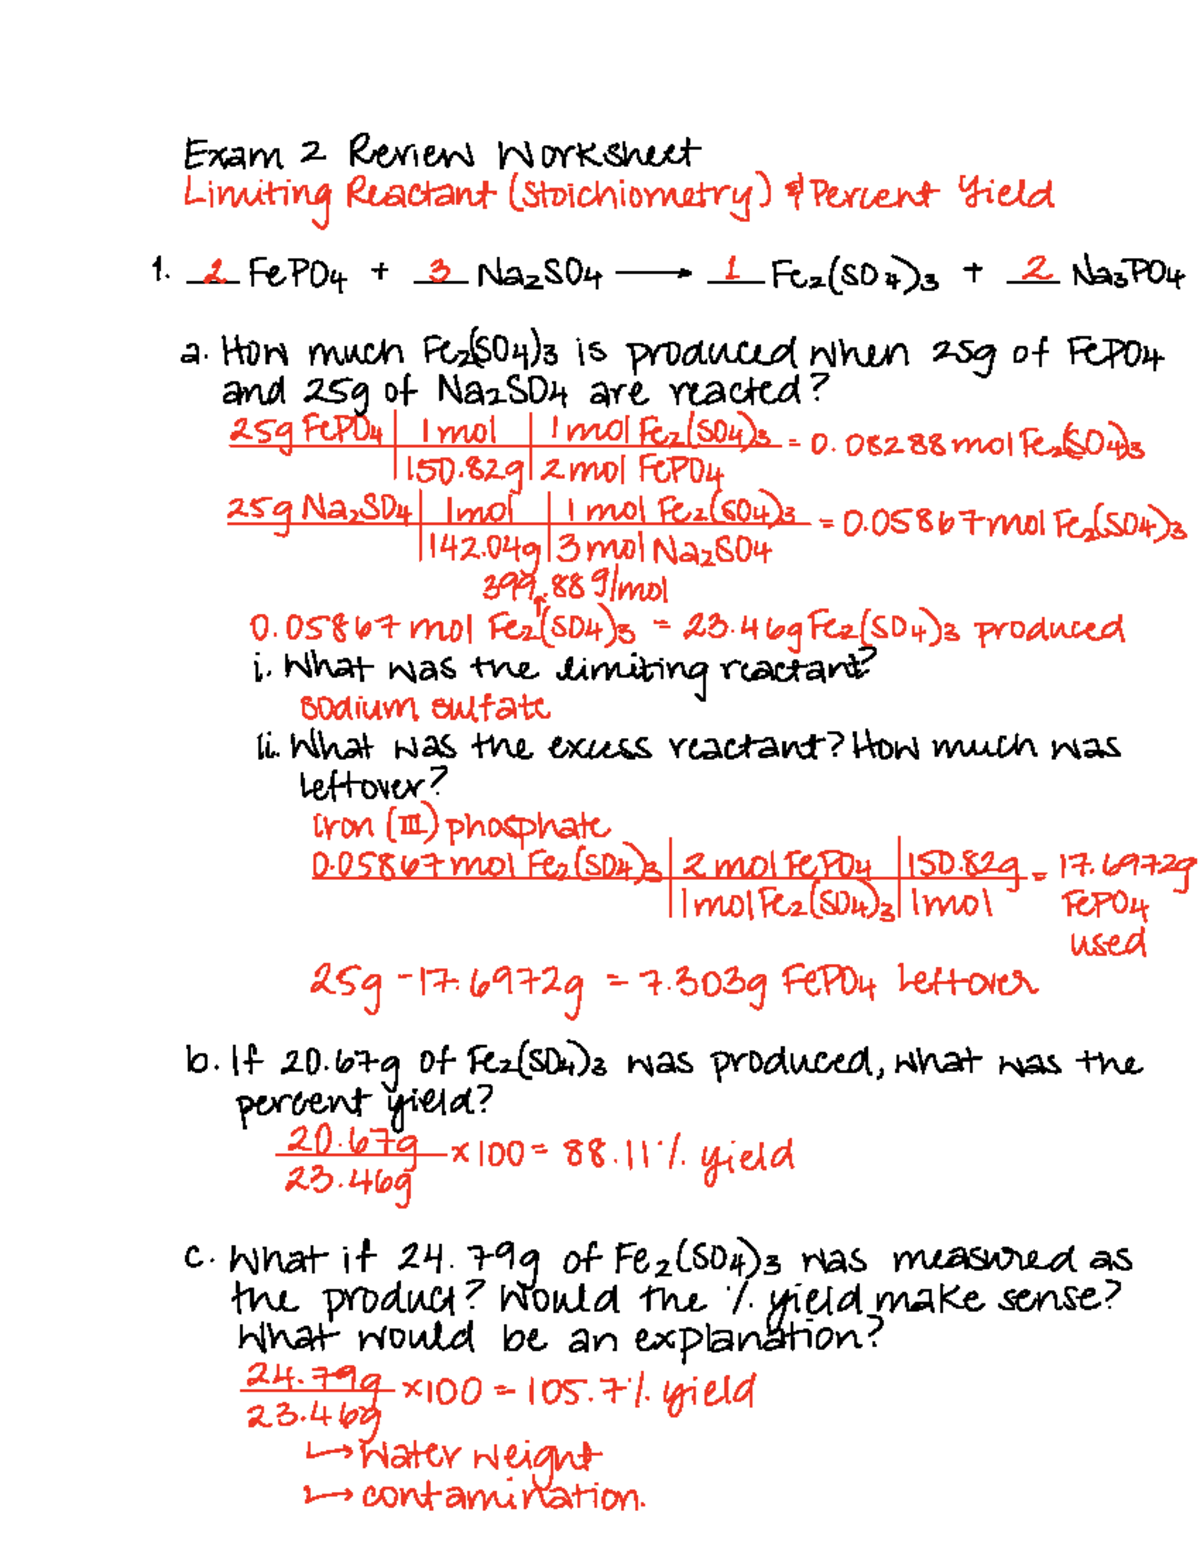 Exam 2 Review Worksheet
Limiting Reactant (Stoichiometry) & Percent Yield
1. 2 FePO4 + 3 Na2SO4 → 1 Fe2(SO4)3 + 2 Na3PO4
a. How much Fe2(SO4)3 is produced when 25g of FePO4
and 25g of Na2SO4 are reacted?
25g FePO4 | 1 mol | 1 mol Fe2(SO4)3 = 0.08288 mol Fe2(SO4)3
150.82g | 2 mol FePO4
25g Na2SO4 | 1mol | 1 mol Fe2(SO4)3 = 0.05867 mol Fe2(SO4)3
142.04g | 3 mol Na2SO4
399.88 g/mol
0.05867 mol Fe2(SO4)3 = 23.46g Fe2(SO4)3 produced
i. What was the limiting reactant?
sodium sulfate
ii. What was the excess reactant? How much was
leftover?
iron (III) phosphate
0.05867 mol Fe2(SO4)3 | 2 mol FePO4 | 150.82g = 17.6972g
1 mol Fe2(SO4)3 | 1mol FePO4
used
25g - 17.6972g = 7.303g FePO4 leftover
b. If 20.67g of Fe2(SO4)3 was produced, what was the
percent yield?
20.67g x 100 = 88.11% yield
23.46g
c. What if 24.79g of Fe2(SO4)3 was measured as
the product? Would the % yield make sense?
What would be an explanation?
24.79g x100 = 105.7% yield
23.46g
↳ Water weight
↳ contamination.